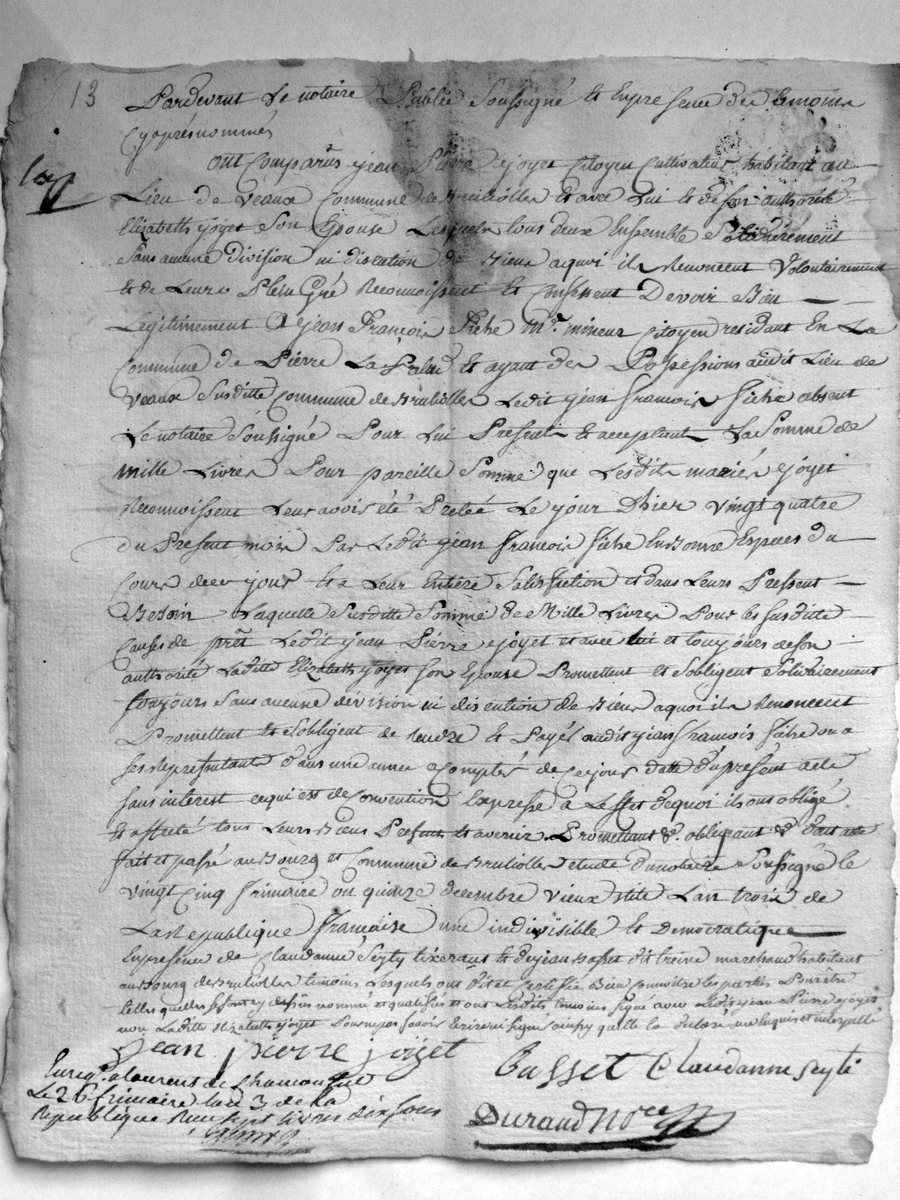 13
Pardevant Le notaire Public Soussigné et En presence des temoins
Cyaprés nommés
ont Comparus jean Pierre joyet Citoyen Cultivateur habitant au
Lieu de Veaux Commune de Brulliolles et avec Lui et de son authorité
Elizabeth joyet son Epouse Lesquels tous deux Ensemble Solidairement
Sans aucune Division ni discution de Biens aquoi ils Renoncent Volontairement
et de Leurs Plein Gré Reconnoissent et Confessent Devoir Bien
Legitimement A jean François fiche mineur Citoyen residant En La
Commune de Pierre La Palud et ayant des Possessions audit Lieu de
Veaux Susditte Commune de Brulliolles Ledit jean francois fiche absent
Le notaire Soussigné Pour Lui Present et acceptant La Somme de
mille Livres Pour pareille Somme que Lesdits mariés joyet
Reconnoissent Leur avoir été Preteé Le jour D'hier vingt quatre
du Present mois Par Ledit jean francois fiche En Bonne Especes du
Cours de ce jour et a Leur Entière Satisfaction et dans Leurs Pressent
Besoin Laquelle Susditte Somme de Mille Livres Pour les susdite
Causes de prêt Ledit jean Pierre joyet et avec lui et toujours de son
authorité Laditte Elizabeth joyet son Epouse Promettent et Sobligent Solidairement
toujours Sans aucune division ni discution de Biens aquoi ils Renoncent
Promettent et Sobligent de Rendre et Payér audit jean francois fiche ou a
ses Representant dans une année a Compter de Ce jour datte du présent acte
sans interest cequi est de Convention Expresse a Leffet dequoi ils ont obligé
et affecté tous Leurs Biens Present et avenir Promettant &. obligeant & Dont acte
fait et passé au Bourg et Commune de Brulliolles etude du notaire Soussigné le
vingt Cinq frimaire ou quinze decembre vieux stile Lan trois de
La Republique francaise une indivisible et Democratique
En presence de Claudanne Seyty tixerant et de jean Basset dit treine marchand habitant
au Bourg de Brulliolles temoins Lesquels ont dit et Certifié Bien Connoitre les parties Pour être
telles quelles se sont cy dessus nommé et qualifiés et ont Lesdits temoins signé avec Ledit jean Pierre joyet
non Laditte Elizabeth joyet Pour ne pas savoir Ecrire ni signé ainsy quelle la Declaré Enquis et interpellé
jean pierre joyet
Basset Claudanne Seyti
Enreg. a laurent de Chamousset
Le 26 frimaire lan 3 de la
Republique Reçu sept livres dix sous
Durand Nore